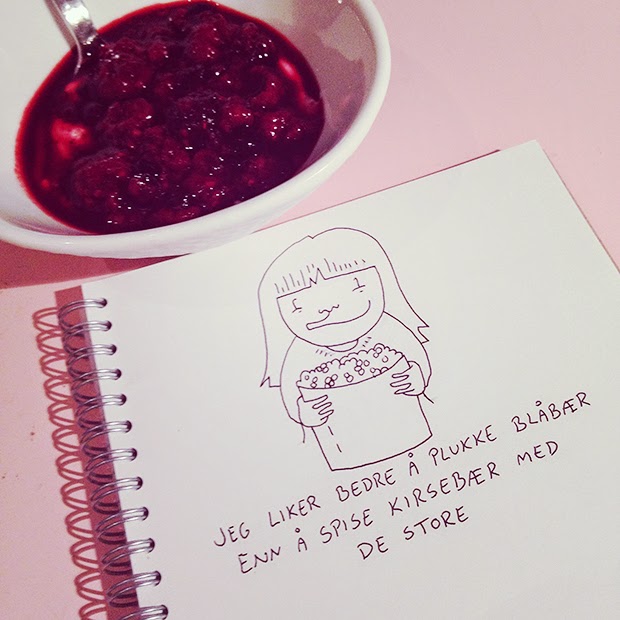 JEG LIKER BEDRE Å PLUKKE BLÅBÆR
ENN Å SPISE KIRSEBÆR MED
DE STORE